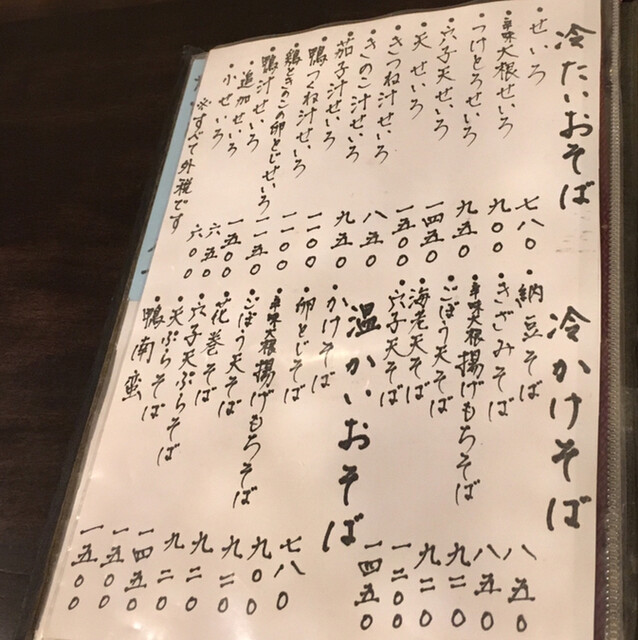 冷たいおそば
・せいろ 七八〇
・辛味大根せいろ 九〇〇
・つけとろせいろ 九五〇
・穴子天せいろ 一四五〇
・天せいろ 一五〇〇
・きつね汁せいろ 八五〇
・きのこ汁せいろ 九五〇
・茄子汁せいろ 一一〇〇
・鴨つくね汁せいろ 一一〇〇
・鶏ときのこの卵とじせいろ 一一五〇
・鴨汁せいろ 一五〇〇
・追加せいろ 六五〇
・小せいろ 六〇〇
※すべて外税です
冷かけそば
・納豆そば 八五〇
・きざみそば 八五〇
・辛味大根揚げもちそば 九二〇
・ごぼう天そば 九二〇
・海老天そば 一二〇〇
・穴子天そば 一四五〇
温かいおそば
・かけそば 七八〇
・卵とじそば 九〇〇
・辛味大根揚げもちそば 九二〇
・ごぼう天そば 九二〇
・花巻そば 九二〇
・穴子天ぷらそば 一四五〇
・天ぷらそば 一五〇〇
・鴨南蛮 一五〇〇